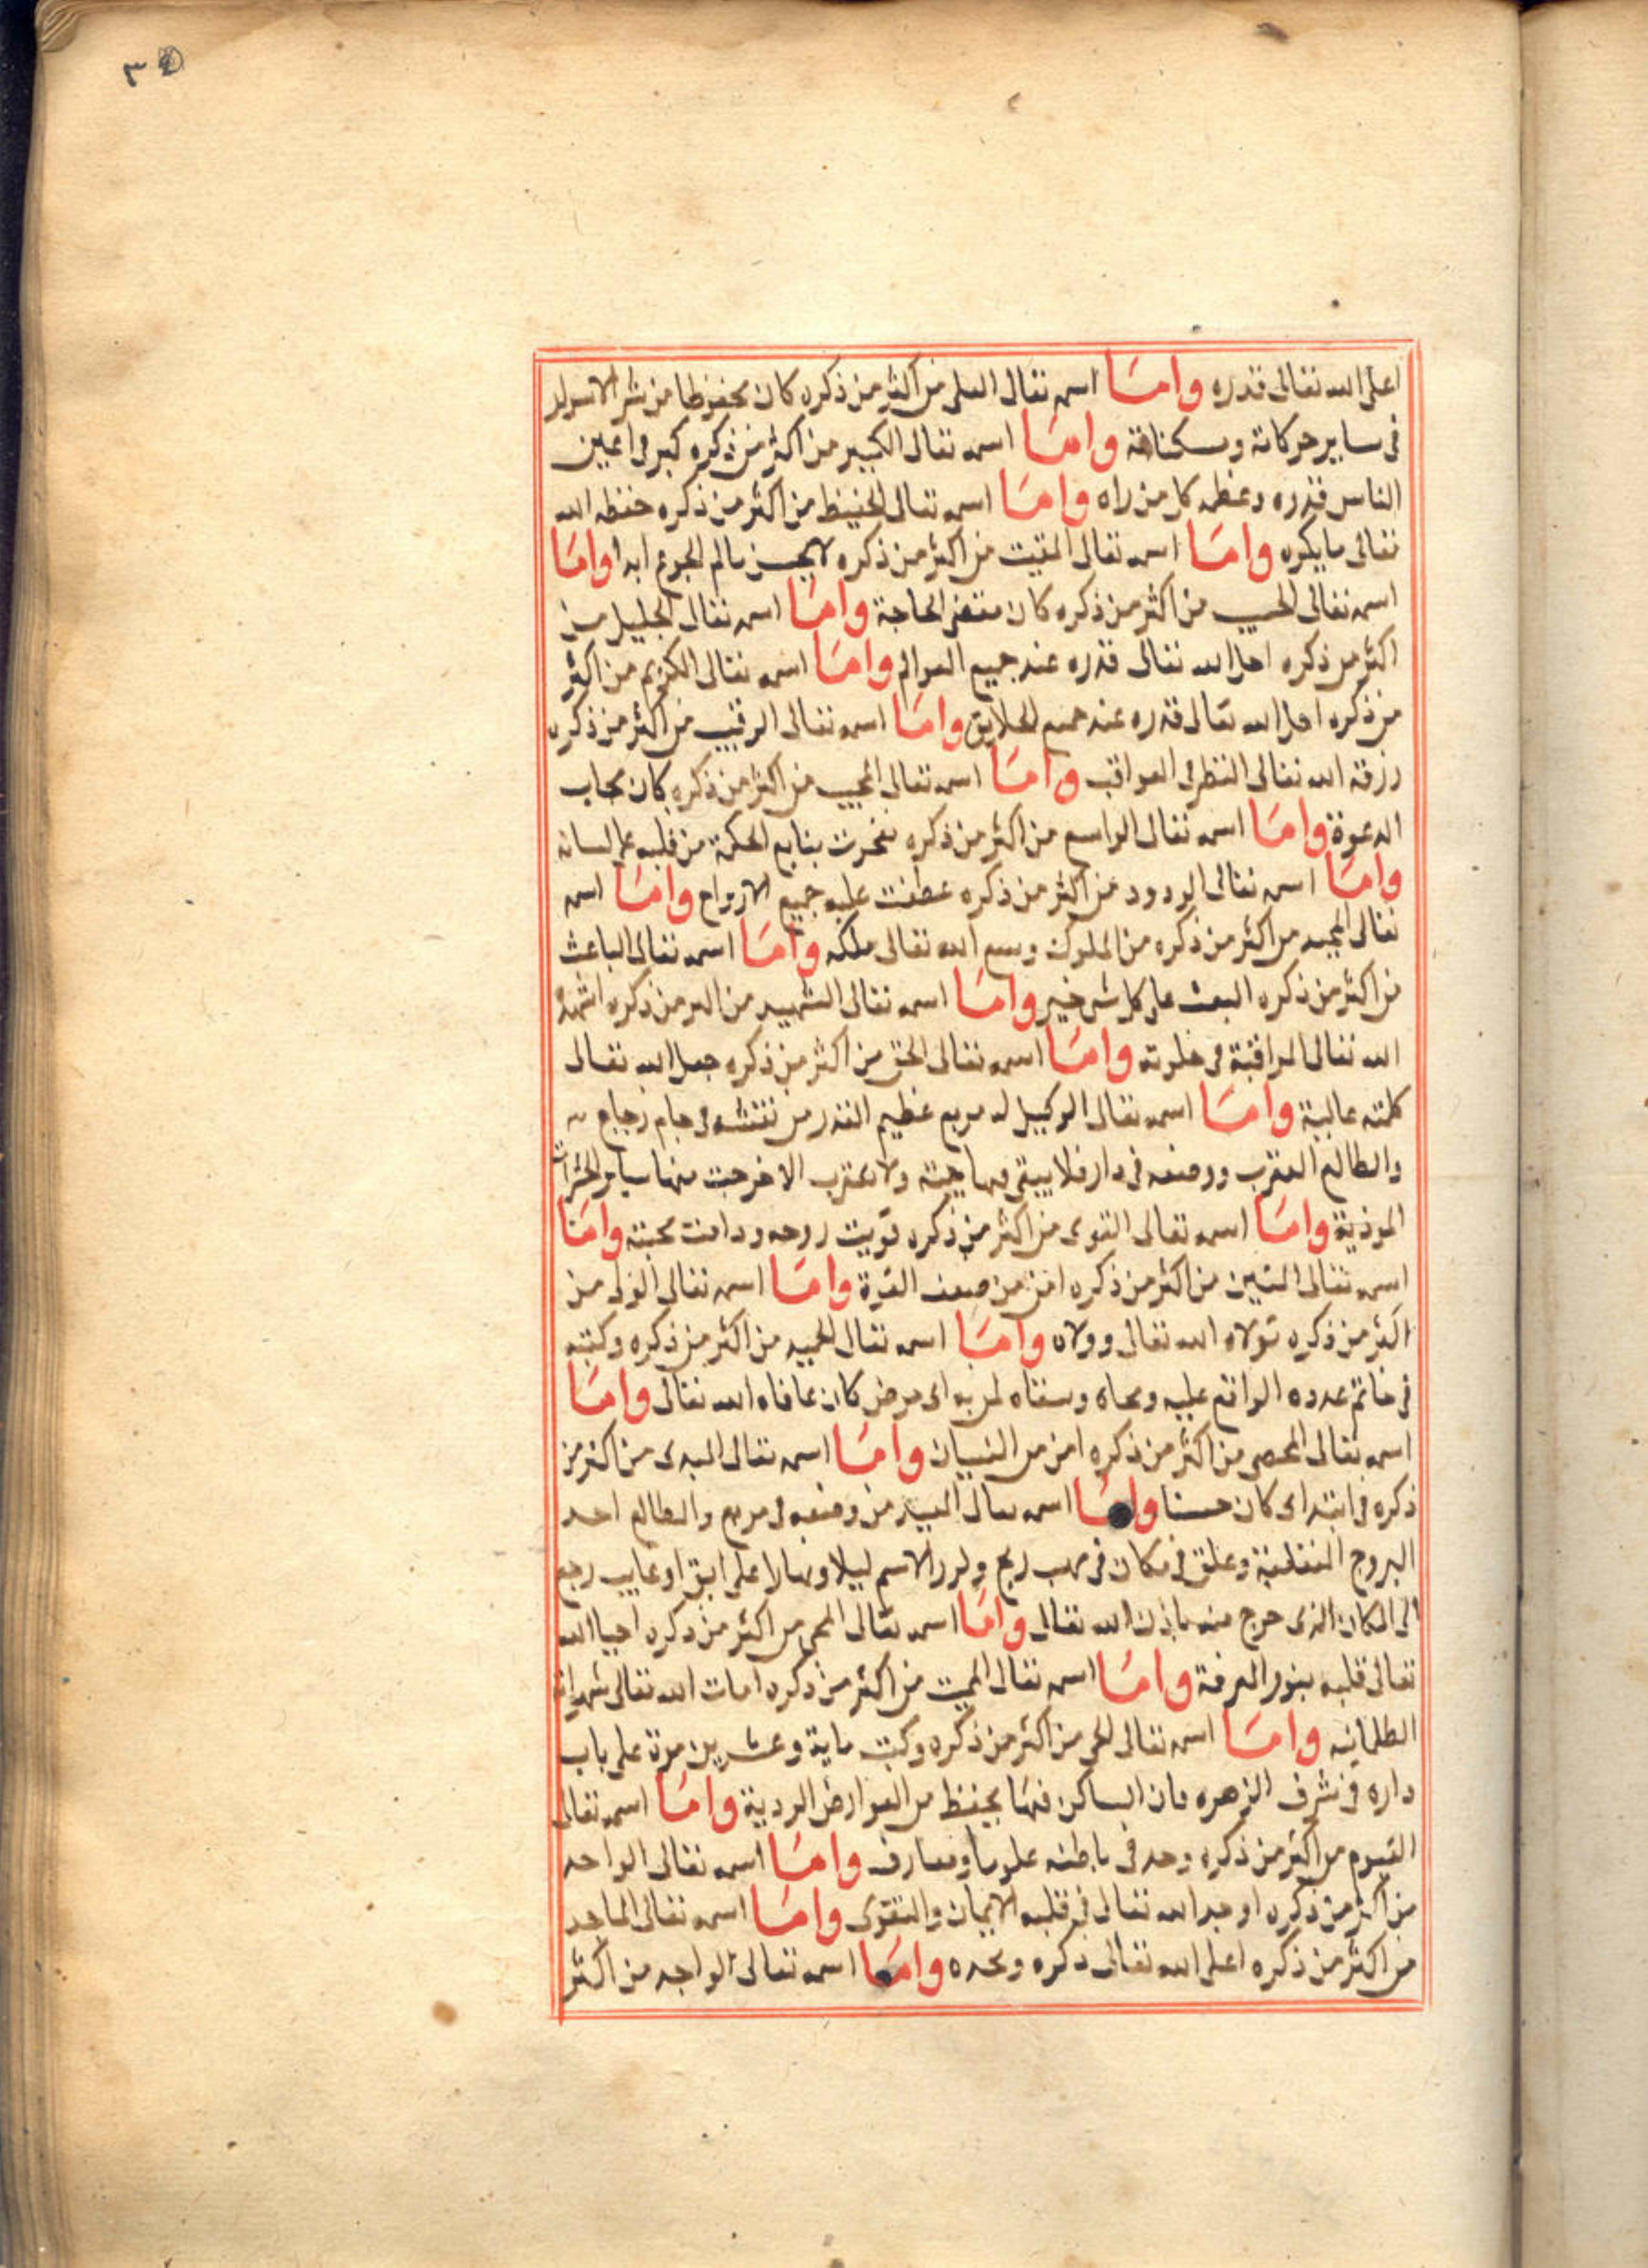 ٣
اعلى الله تعالى قدره واما اسمه تعالى العلى من اكثر من ذكره كان محفوظا من شر الاسرار
فى ساير حركاته وسكناته واما اسمه تعالى الكبير من اكثر من ذكره كبر فى اعين
الناس قدره وعظمه كل من راه واما اسمه تعالى الحفيظ من اكثر من ذكره حفظه الله
تعالى مايكره واما اسمه تعالى المقيت من اكثر من ذكره لا يحس بالم الجوع ابدا واما
اسمه تعالى الحسيب من اكثر من ذكره كان مقضى الحاجة واما اسمه تعالى الجليل من
اكثر من ذكره اجل الله تعالى قدره عند جميع العوالم واما اسمه تعالى الكريم من اكثر
من ذكره اجل الله تعالى قدره عند جميع الخلايق واما اسمه تعالى الرقيب من اكثر من ذكره
رزقه الله تعالى النظر فى العواقب واما اسمه تعالى المجيب من اكثر من ذكره كان مجاب
الدعوة واما اسمه تعالى الواسع من اكثر من ذكره تفجرت ينابيع الحكمة من قلبه على لسانه
واما اسمه تعالى الودود من اكثر من ذكره عطفت عليه جميع الارواح واما اسمه
تعالى المجيد من اكثر من ذكره من الملوك وسع الله تعالى ملكه واما اسمه تعالى الباعث
من اكثر من ذكره البعث على كل شى خير واما اسمه تعالى الشهيد من اكثر من ذكره اشهده
الله تعالى المراقبة فى خلوته واما اسمه تعالى الحق من اكثر من ذكره جعل الله تعالى
كلمته عالية واما اسمه تعالى الوكيل له مربع عظيم القدر من نقشه فى جام زجاج
والطالع العقرب ووضعه فى دار فلا يبقى فيها حية ولا عقرب الا خرجت منها ساير الحشرات
الموذية واما اسمه تعالى القوى من اكثر من ذكره قويت روحه ودامت محبته واما
اسمه تعالى المتين من اكثر من ذكره امن من ضعف القوة واما اسمه تعالى الولى من
اكثر من ذكره تولاه الله تعالى وولاه واما اسمه تعالى الحميد من اكثر من ذكره وكتبه
فى خاتم عدده الواقع عليه ومحاه وسقاه لمن به اى مرض كان عافاه الله تعالى واما
اسمه تعالى المحصى من اكثر من ذكره امن من النسيان واما اسمه تعالى المبدى من اكثر من
ذكره فى ابتداى كان حسنا واما اسمه تعالى المعيد من وضعه فى مربع والطالع احد
البروج المنقلبة وعلق فى مكان فى مهب ريح وكرر الاسم ليلا ونهارا على ابق او غايب رجع
الى المكان الذى خرج منه باذن الله تعالى واما اسمه تعالى المحى من اكثر من ذكره احيا الله
تعالى قلبه بنور المعرفة واما اسمه تعالى المميت من اكثر من ذكره امات الله تعالى شهواته
الظلمانيه واما اسمه تعالى الحى من اكثر من ذكره وكتب ماية وعشرين مرة على باب
داره فى شرف الزهره فان الساكن فيها يحفظ من العوارض الردية واما اسمه تعالى
القيوم من اكثر من ذكره وجد فى باطنه علوما ومعارف واما اسمه تعالى الواحد
من اكثر من ذكره اوجد الله تعالى فى قلبه الايمان والتقوى واما اسمه تعالى الماجد
من اكثر من ذكره اعلى الله تعالى ذكره ومجده واما اسمه تعالى الواجد من اكثر